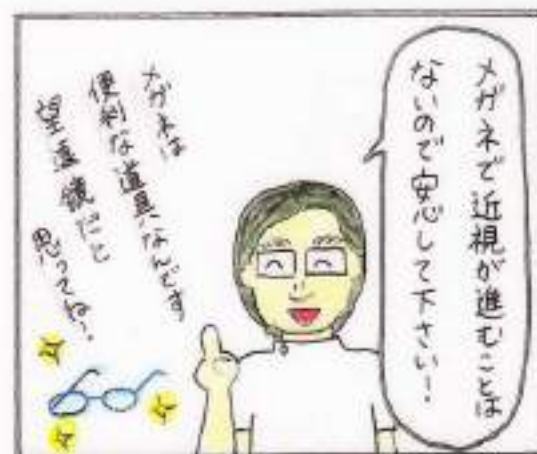 メガネで近視が進むことは
ないので安心して下さい！
メガネは
便利な道具なんです、
望遠鏡だと
思ってね…